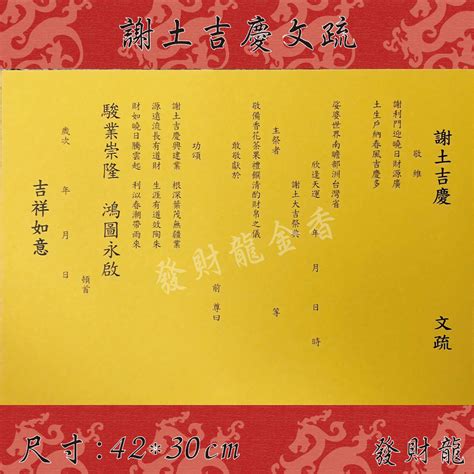 謝土吉慶文疏
謝土吉慶　文疏
啟維
謝利門迎曉日財源廣
土生戶納春風吉慶多
娑婆世界南瞻部洲台灣省
欣逢天運　年　月　日　時
謝土大吉祭典
主祭者　等
敬備香花茶果禮饌清酌財帛之儀
敢敬獻於
前 尊曰
功頌
謝土吉慶興建業　根深葉茂無疆業
源遠流長有道財　生涯有道效陶朱
財如曉日騰雲起　利似春潮帶雨來
駿業崇隆　鴻圖永啟
歲次　年　月　日　頓首
吉祥如意
發財龍金香
尺寸:42*30cm
發財龍